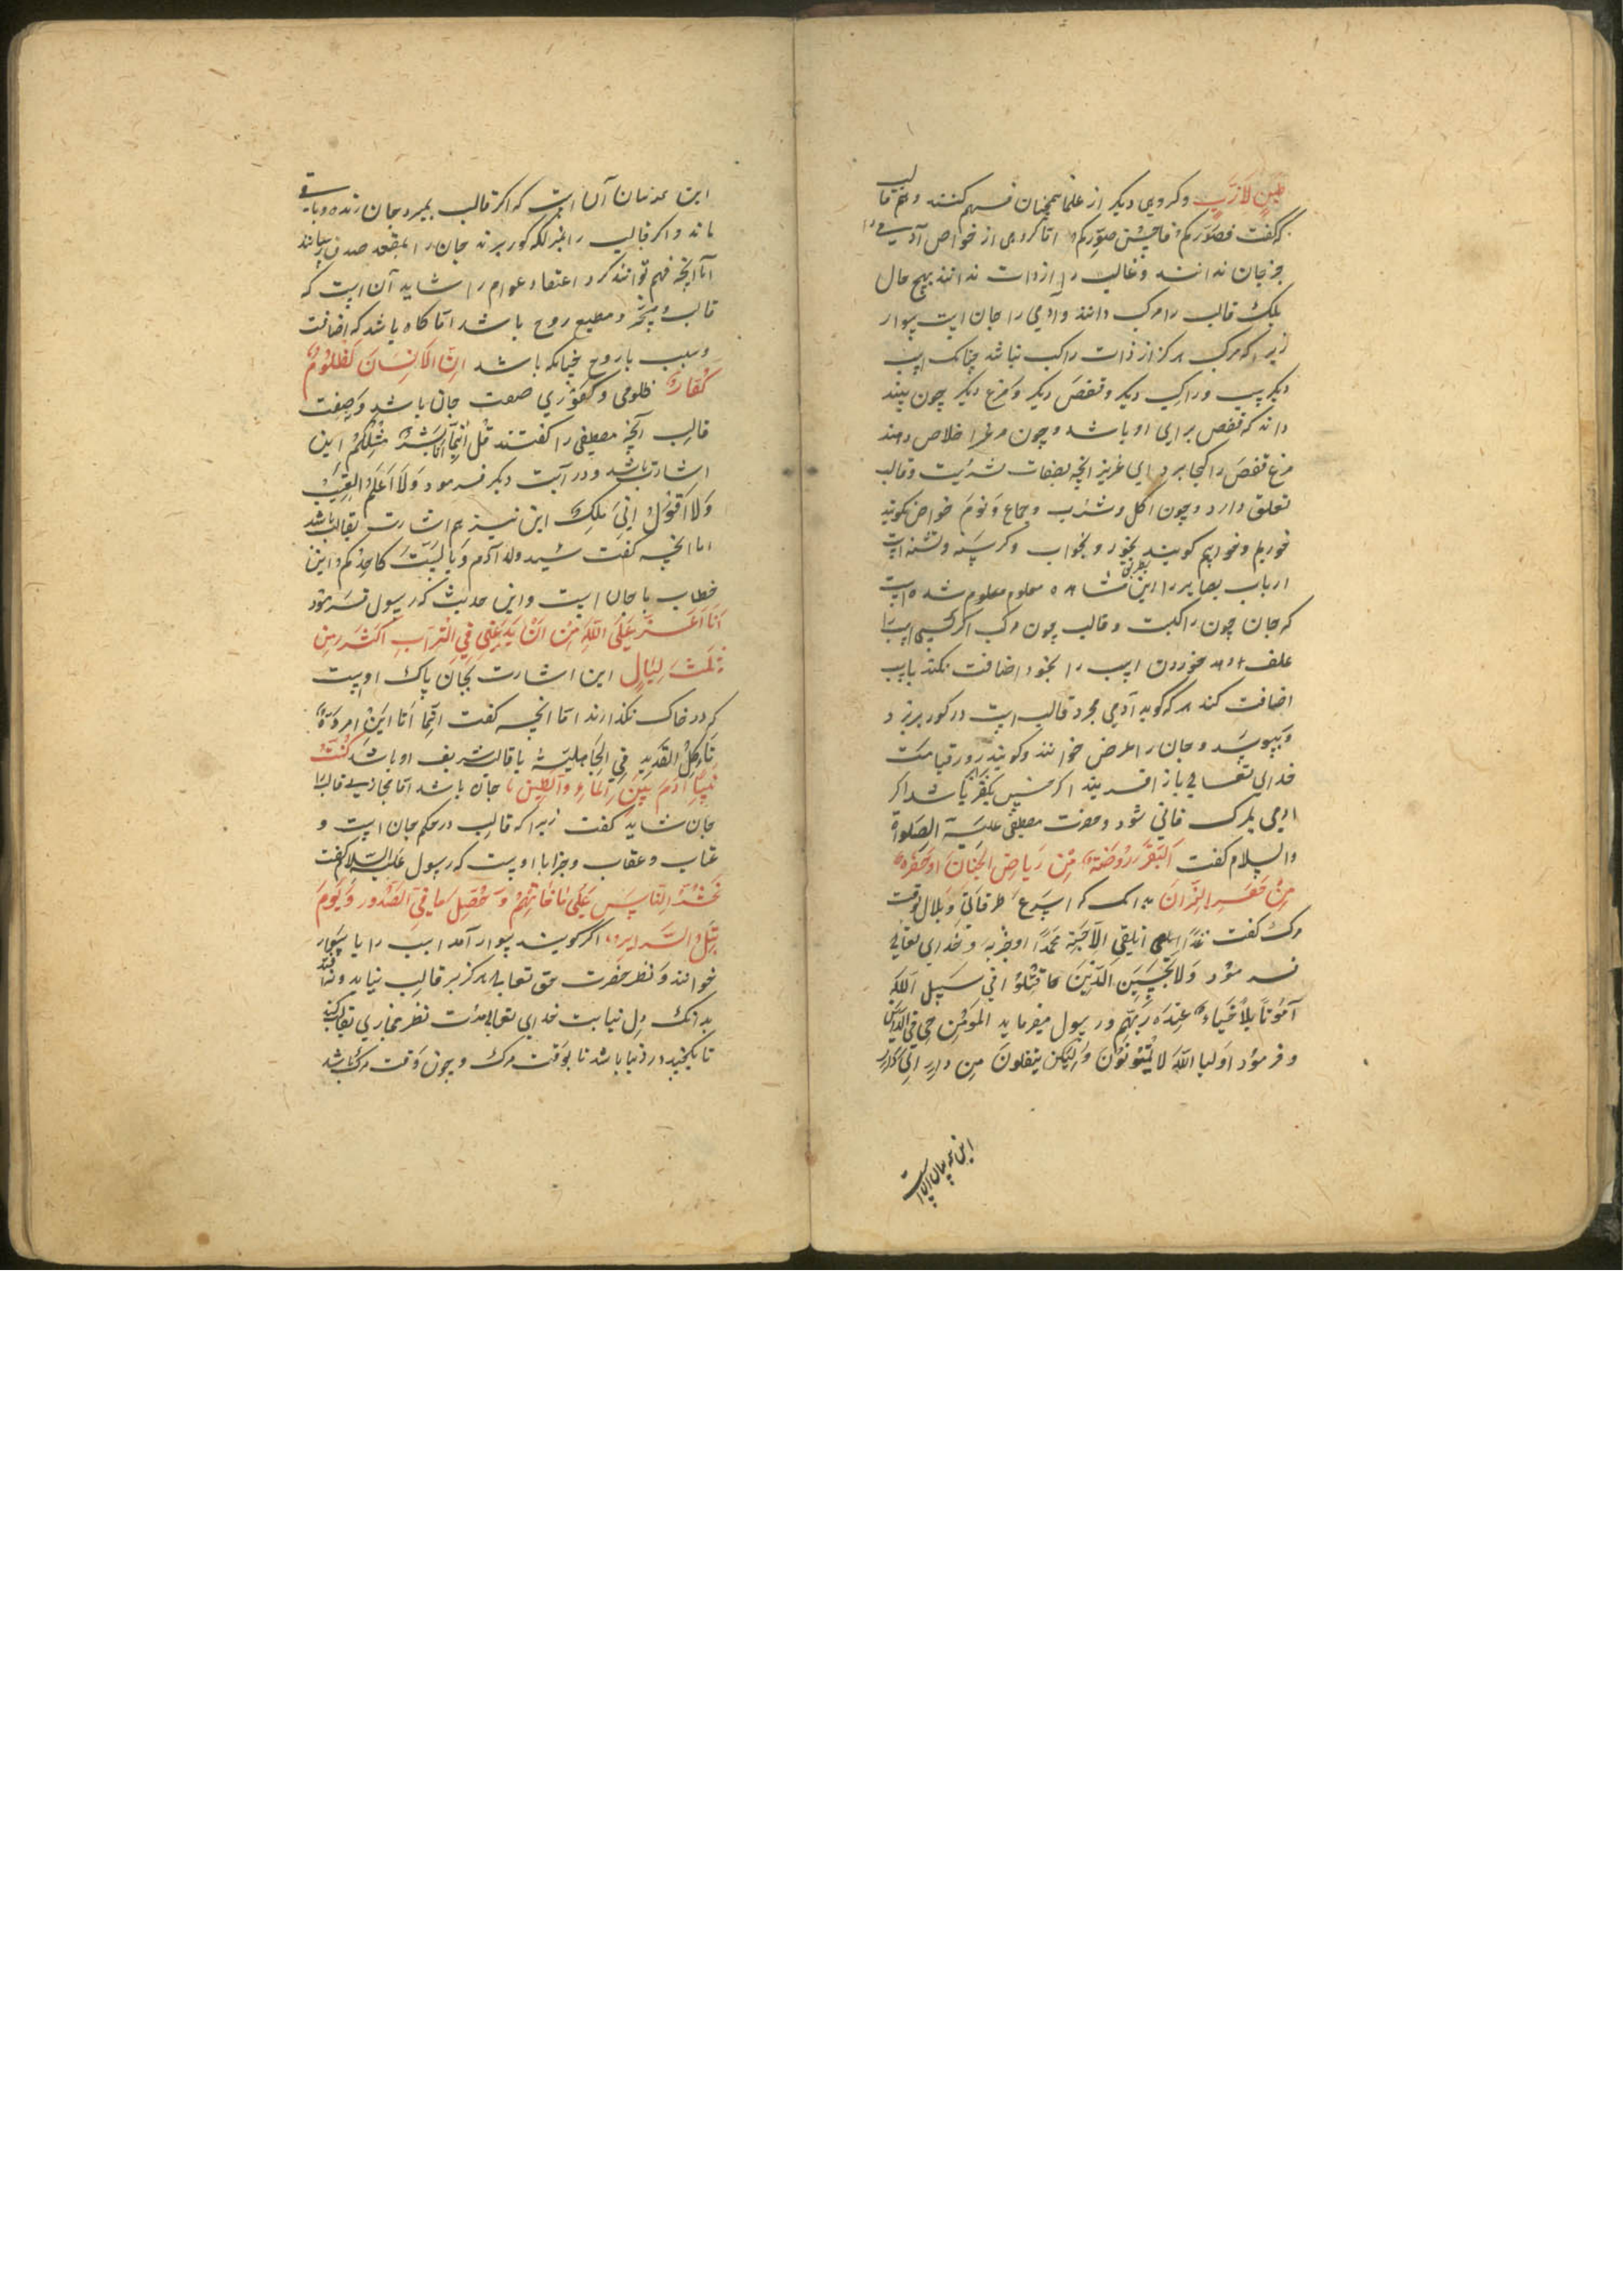 طینٍ لازبٍ و کروهی دیکر از علما همچنان فهم کنند و هم قالب
که کفت فصوّرکم فاحسن صورکم اما کروهی از خواص آدمی را
جز جان ندانند و قالب را از ذات ندانند بهیچ حال
بلک قالب را مرکب دانند و آدمی را جان است سوار
زیرا که مرکب هرکز از ذات راکب نباشد چنانک اسب
دیکر است و راکب دیکر و قفص دیکر و مرغ دیکر چون بیند
داند که قفص برای او باشد و چون مرغ را خلاص دهند
مرغ قفص را کجا برد ای عزیز انچه بصفات بشریت و قالب
تعلق دارد و چون اکل و شرب و جماع و نوم خواص نکویند
خوریم و خوابیم کویند بخورد و بخواب و کرسنه و تشنه است
ارباب بصایر را این بطریق مشاهده معلوم شده است
که جان چون راکبست و قالب چون مرکب اکر کسی اسب را
علف دهد خوردن اسب را بخود اضافت نکند باسب
اضافت کند هر که کوید آدمی مجرد قالب است در کور بریزد
و بپوسد و جان را عرض خوانند و کویند روز قیامت
خدای تعالی باز افریند اکر کسی بکفر باشد اکر
ادمی بمرک فانی شود و حضرت مصطفی علیه الصلوة
والسلام کفت القبر روضة من ریاض الجنان او حفرة
من حفر النیران بدانک که و بلال بوقت
مرک کفت غدًا نلقی الاحبة محمدًا و حزبه و خدای تعالی
فرمود ولا تحسبن الذین قتلوا فی سبیل الله
امواتًا بل احیاء عند ربهم و رسول میفرماید المؤمن حی فی الدارین
و فرمود اولیا الله لا یموتون ولکن ینقلون من دار الی دار
این همه بیان آن است
این همه بیان آن است که اکر قالب بمیرد جان زنده و باقی
ماند و اکر قالب را بمنزلکه کور برند جان را بمقعد صدق رسانند
اما انچه فهم توانند کرد اعتقاد عوام را شاید آن است که
قالب مسخر و مطیع روح باشد اما کاه باشد که اضافت
و سبب با روح چنانکه باشد انّ الانسان لظلومٌ
کفارٌ ظلومی و کفوری صفت جان باشد و صفت
قالب آنچه مصطفی را کفتند قل انما انا بشر مثلکم این
اشارت باشد و در آیت دیکر فرمود ولا اعلم الغیب
ولا اقول انی ملک این نیز هم اشارت بقالب باشد
اما انچه کفت سید ولد آدم و لست کاحدکم این
خطاب با جان است و این حدیث که رسول فرمود
انا اعز علی الله من ان یدعنی فی التراب اکثر من
ثلث لیال این اشارت بجان پاک اوست
که در خاک نکذارند اما انچه کفت انما انا ابن امرءة
تاکل القدید فی الجاهلیة با قالب شریف او باشد کنت
نبیا و آدم بین الماء والطین با جان باشد اما مجازی قالب را
جان شاید کفت زیرا که قالب در حکم جان است و
عتاب و عقاب و جزا با اوست که رسول علیه السلام کفت
یحشر الناس علی نیاتهم و حصل ما فی الصدور و یوم
تبلی السرایر اکر کویند سوار آمد اسب را با سوار
نخوانند و نظر حضرت حق تعالی هرکز بر قالب نیاید
بدانک دل نیابت خدای تعالی نظر مجازی بقالب کند
در دنیا باشد تا بوقت مرک و چون وقت مرک باشد